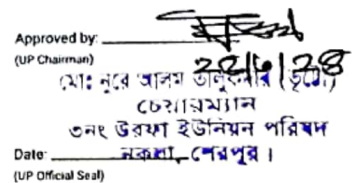 Approved by:
(UP Chairman)
২৫/৬/২৪
মোঃ নূরে আলম তালুকদার (ভূট্টো)
চেয়ারম্যান
৩নং উরফা ইউনিয়ন পরিষদ
Date: নকলা, শেরপুর।
(UP Official Seal)